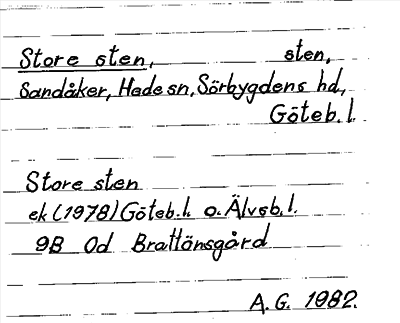 Store sten, sten,
Sandåker, Hede sn, Sörbygdens hd,
Göteb. l.
Store sten
ek (1978) Göteb. l. o. Älvsb. l.
9B 0d Brattönsgård
A. G. 1982.